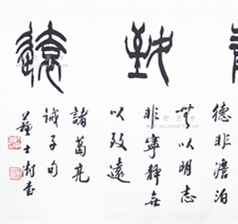 致遠
德非澹泊
無以明志
非寧靜無
以致遠
諸葛亮
誡子句
蘇士澍書